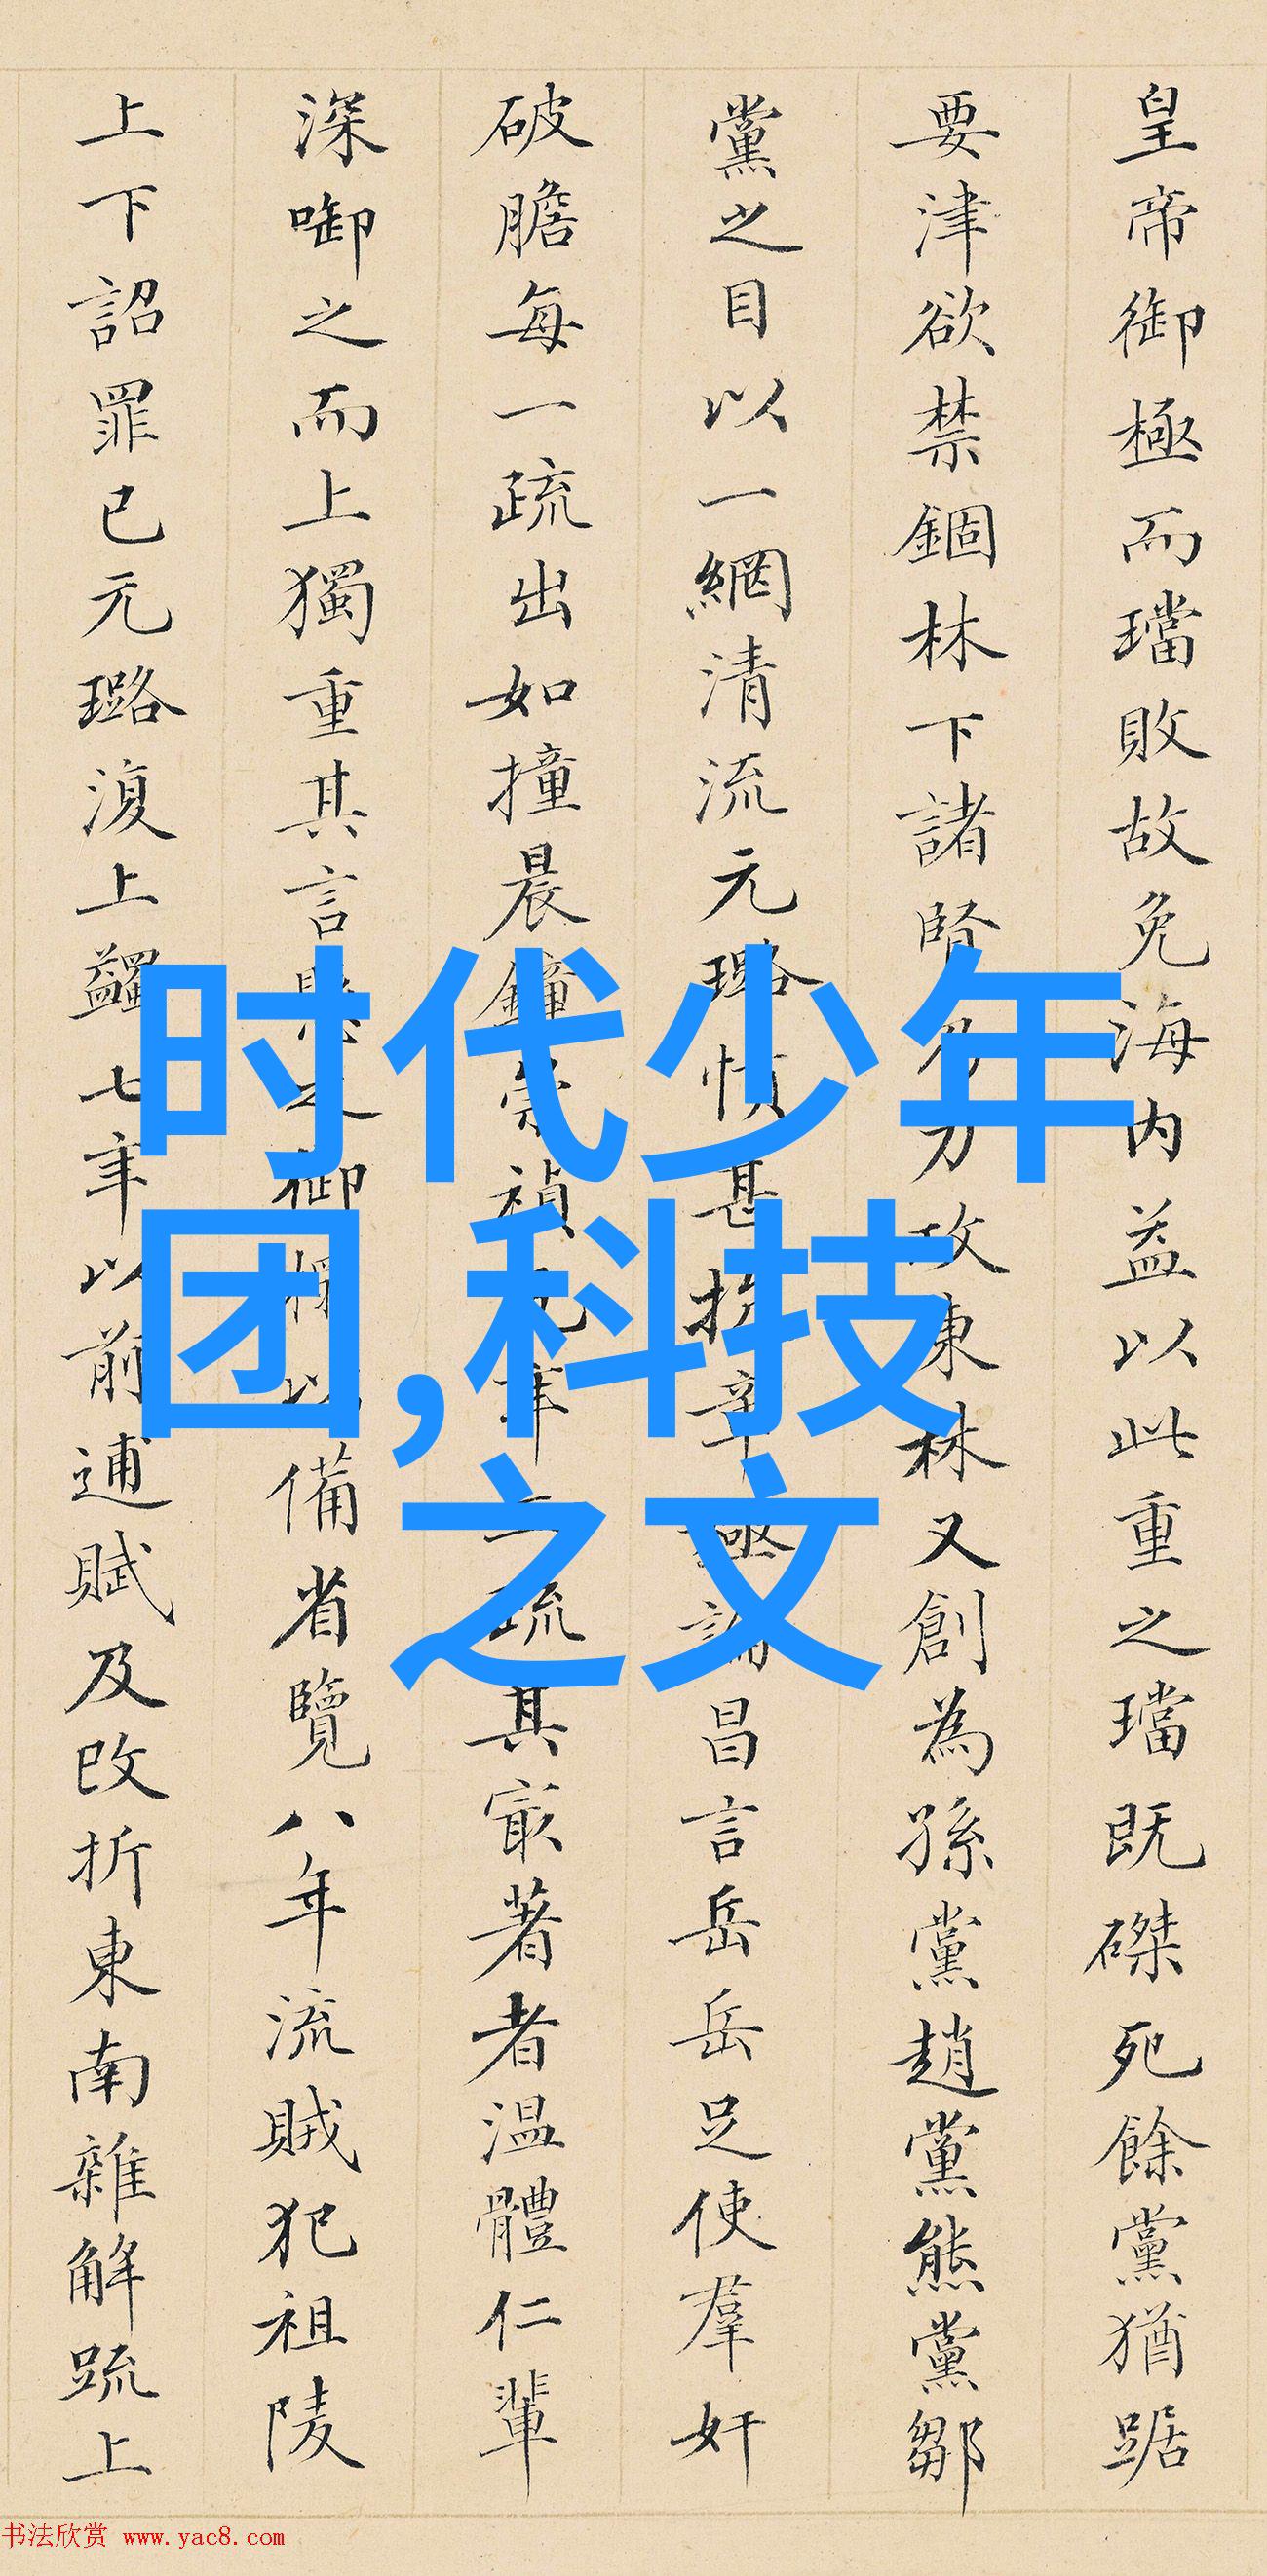 皇帝御極而璫敗故免海内益以此重之璫既磔死餘黨猶踞
要津欲禁錮林下諸賢力攻東林又創為孫黨趙黨熊黨鄒
黨之目以一網清流元璐憤甚抗章極論昌言岳岳足使羣奸
破膽每一疏出如撞晨鐘崇禎元年疏其㝡著者溫體仁輩
深啣之而上獨重其言懸之御屏以備省覽八年流賊犯祖陵
上下詔罪已元璐復上蠲七年以前逋賦及改折東南雜解疏上
时代少年
团,科技
之文
书法欣赏 www.yac8.com